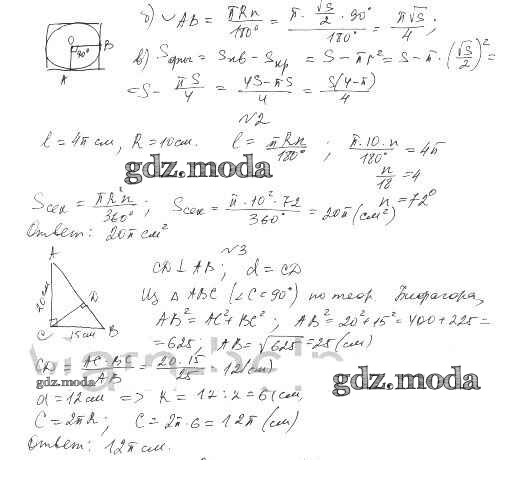 б) ◡AB = πRn/180° = π·√S/2·90°/180° = π√S/4 ;
O 90° B A
в) Sфиг = Sкв − Sкр = S − πr² = S − π·(√S/2)² =
= S − πS/4 = 4S−πS/4 = S(4−π)/4
№2
l = 4π см, R = 10см. l = πRn/180° ; π·10·n/180° = 4π
n/18 = 4
gdz.moda
n = 72°
Sсек = πR²n/360° ; Sсек = π·10²·72/360° = 20π (см²)
Ответ: 20π см²
№3
A 20см D C 15см B
CD ⊥ AB ; d = CD
Из △ ABC (∠C = 90°) по теор. Пифагора,
AB² = AC² + BC² ; AB² = 20² + 15² = 400 + 225 =
= 625, AB = √625 = 25 (см)
CD = AC·BC/AB = 20·15/25 = 12 (см)
gdz.moda
gdz.moda
d = 12см => R = 12 : 2 = 6 (см,
C = 2πR ; C = 2π·6 = 12π (см)
Ответ: 12π см.